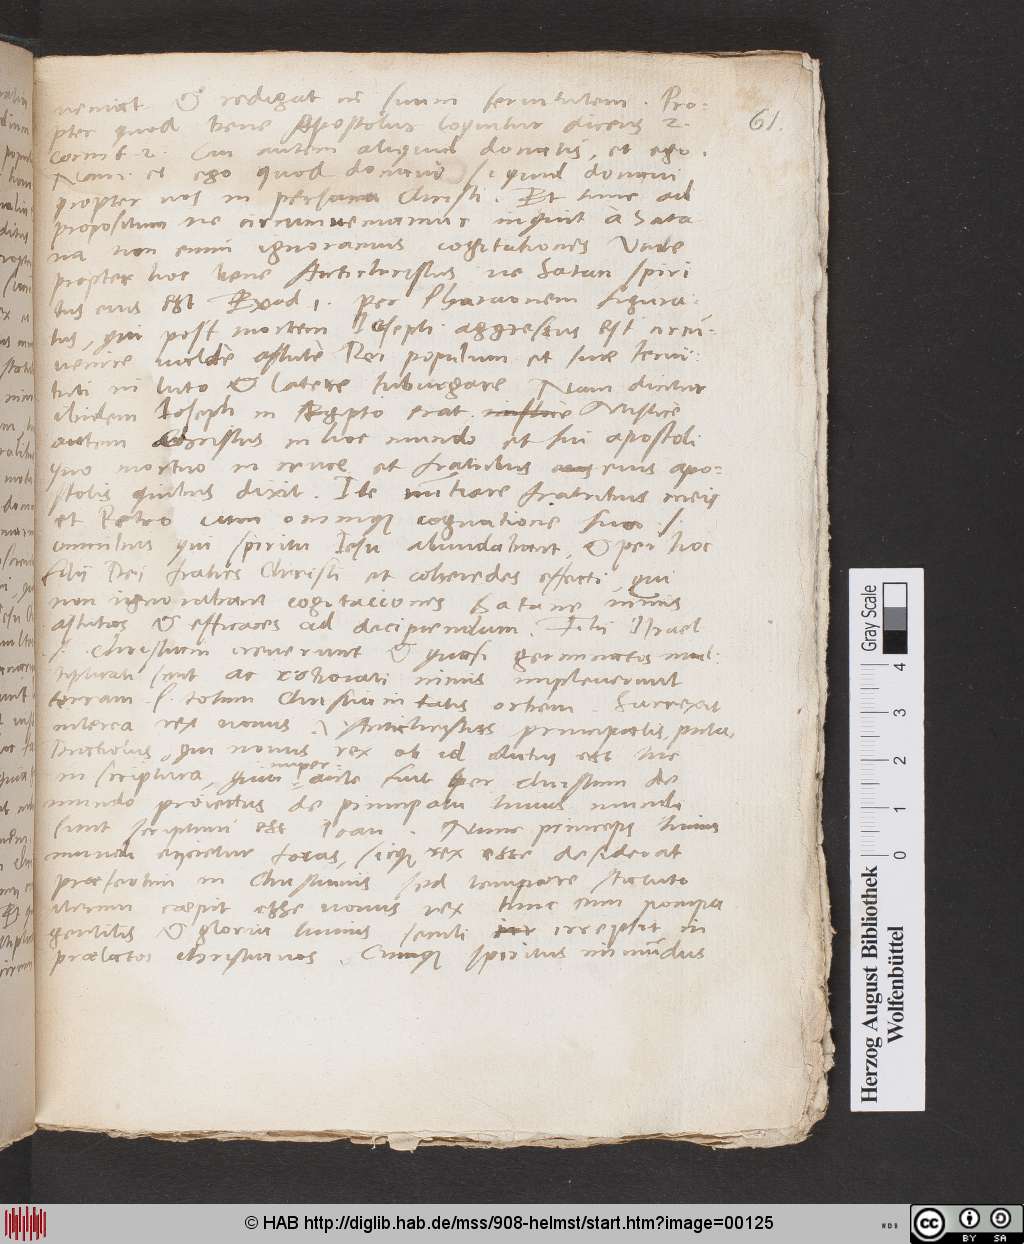 veniat & redigat in suum servitutem. Pro-
pter quod bene Apostolus loquitur dicens 2.
Corint. 2. Cui autem aliquid donatis, et ego.
Nam et ego quod donavi si quid donavi
propter vos in persona Christi. Et tunc ad
propositum ne circumveniamur inquit a Sata
na non enim ignoramus cogitationes Unde
propter hoc bene Antichristus ve Satan spiri
tus eius est Exod 1. per Pharaonem figura-
tus, qui post mortem Ioseph aggressus est circu-
venire valde astute Dei populum et suae servi
tuti in luto & latere subiugare Nam dicitur
ibidem Ioseph in Egypto erat. Mistice
autem Christus in hoc mundo et sui apostoli
quo mortuo in cruce et fratribus eius apo-
stolis quibus dixit. Ite nuntiate fratribus meis
et Petro cum omnique cognatione sua s.
omnibus qui spiritu Iesu abundabant, & per hoc
filij Dei fratres Christi et coheredes effecti, qui
non ignorabant cogitaciones Satane nimis
astutas & efficaces ad decipiendum. Filii Israel
s. Christum creverunt & quasi germinantes mul-
tiplicati sunt ac roborati nimis impleverunt
terram s. totum Christianitatis orbem. Surrexit
interea rex novus. Antichristus principalis, puta
Diabolus, qui novus rex ob id dictus est hic
in scriptura, quia nuper ante fuit per Christum de
mundo proiectus de principatu huius mundi
sicut scriptum est Ioan. Nunc princeps huius
mundi eijcietur foras, sicque rex esse desiderat
praesertim in Christianis sed tempore statuto
iterum caepit esse novus rex tunc cum pompa
gentilis & gloria huius seculi irrepsit in
praelatos christianos. Cumque spiritus immundus
61.
Gray Scale
0 1 2 3 4
Herzog August Bibliothek
Wolfenbüttel
© HAB http://diglib.hab.de/mss/908-helmst/start.htm?image=00125
WDB
cc BY SA